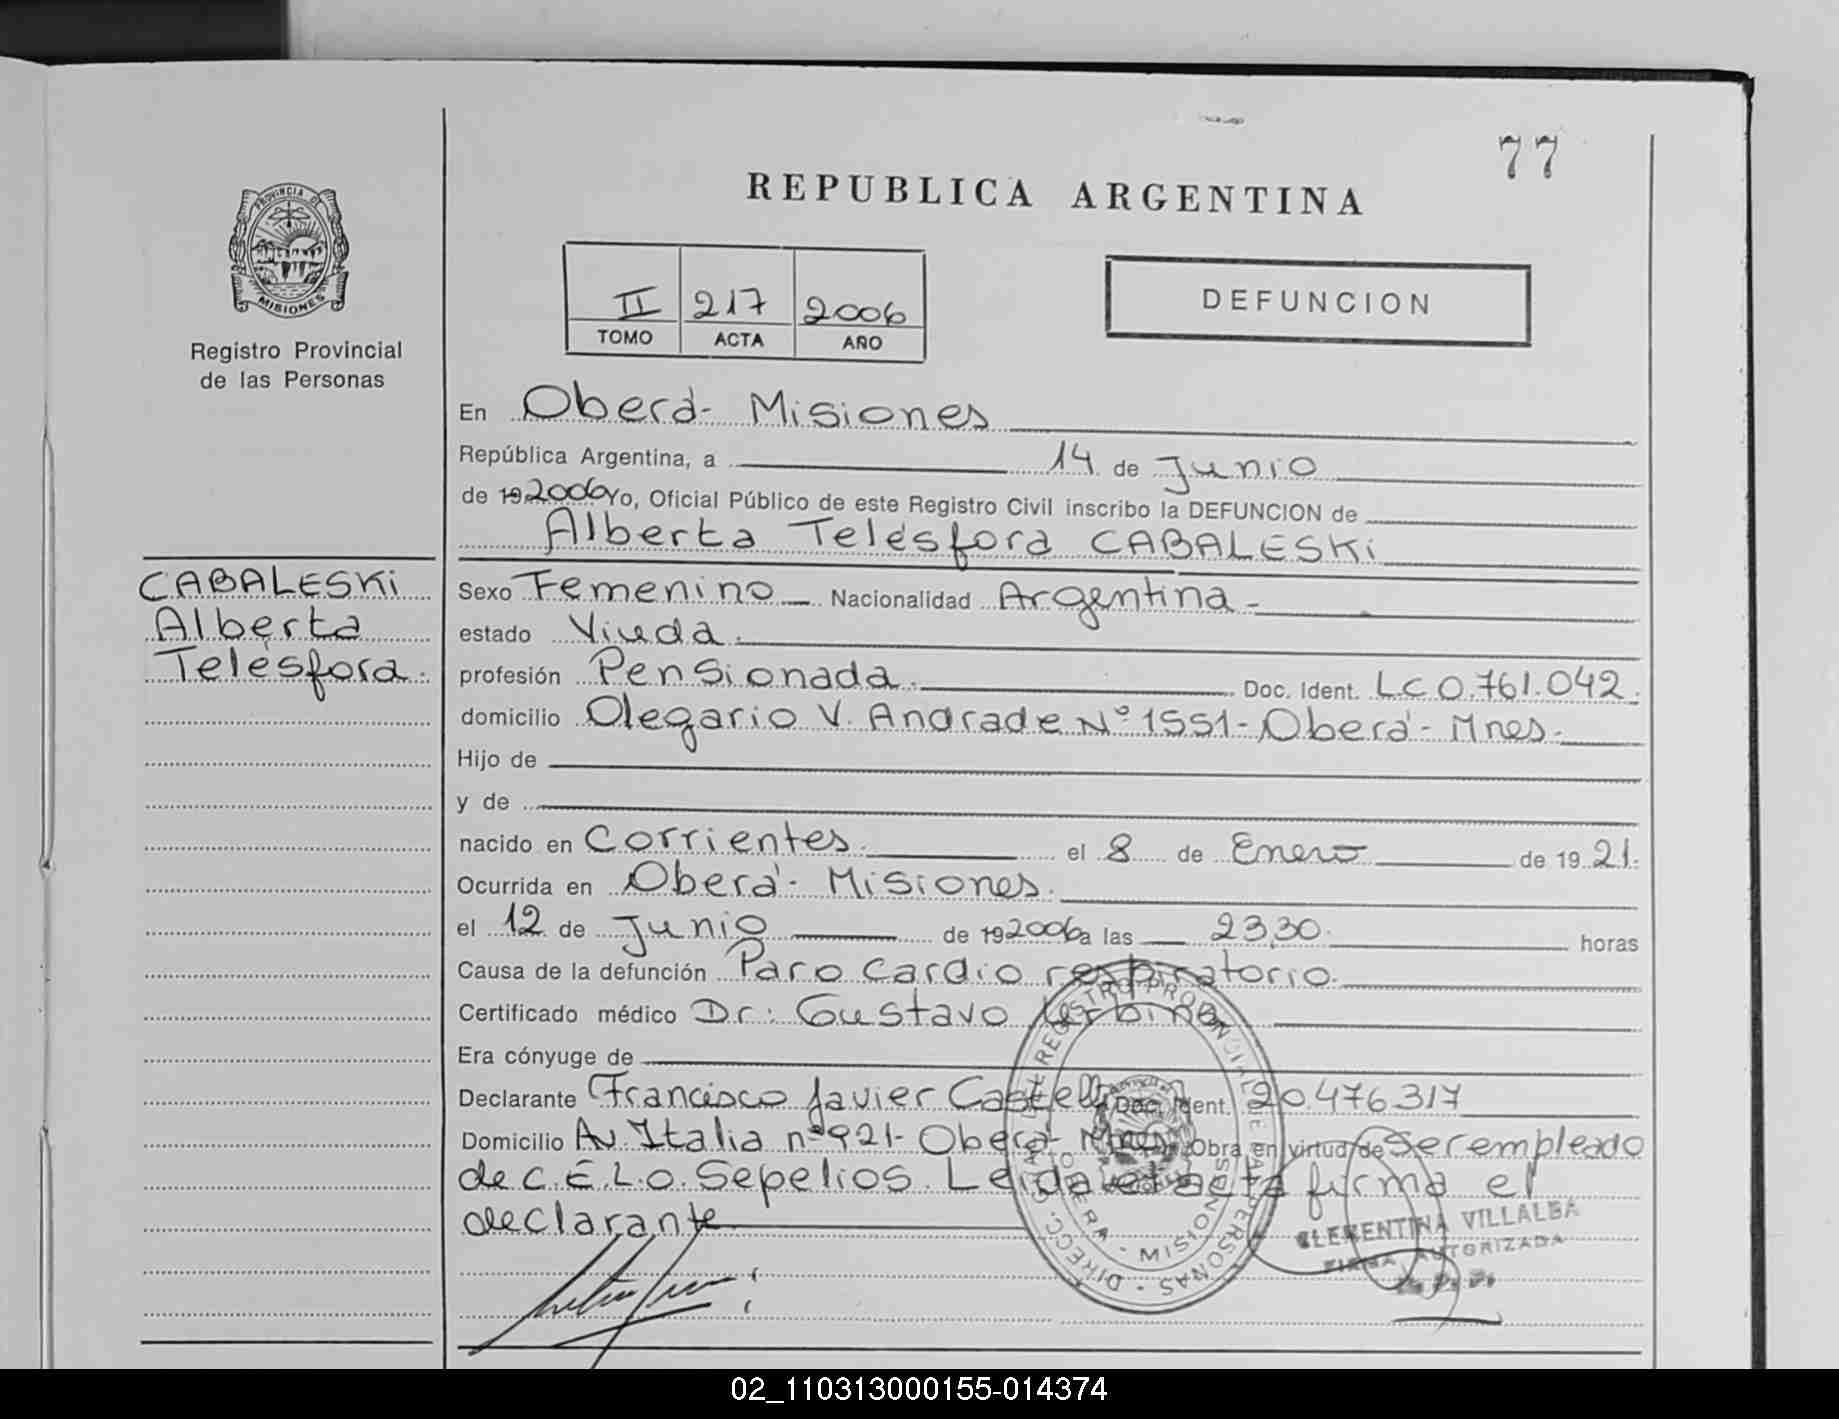 77
REPUBLICA ARGENTINA
PROVINCIA DE
MISIONES
Registro Provincial
de las Personas
II 217 2006
TOMO ACTA AÑO
DEFUNCION
En Oberá- Misiones
República Argentina, a 14 de Junio
de 19 2006 Yo, Oficial Público de este Registro Civil inscribo la DEFUNCION de
Alberta Telésfora CABALESKi
CABALESKi
Alberta
Telésfora.
Sexo Femenino Nacionalidad Argentina-
estado Viuda.
profesión Pensionada. Doc. Ident. L.C 0.761.042.
domicilio Olegario V. Andrade Nº 1551- Oberá- Mnes.
Hijo de
y de
nacido en Corrientes. el 8 de Enero de 19 21.
Ocurrida en Oberá- Misiones.
el 12 de Junio de 19 2006 a las 23,30. horas
Causa de la defunción Paro cardio respiratorio.
Certificado médico Dr: Gustavo
Era cónyuge de
Declarante Francisco Javier Doc. Ident. 20.476.317
Domicilio Av. Italia nº 921- Oberá- Mnes. Obra en virtud de Ser empleado
de C.E.L.O. Sepelios. Leida el acta firma el
declarante
DIRECC. GRAL. DEL REGISTRO PROVINCIAL DE LAS PERSONAS
OBERA - MISIONES
CLEMENTINA VILLALBA
FIRMA AUTORIZADA
02_110313000155-014374